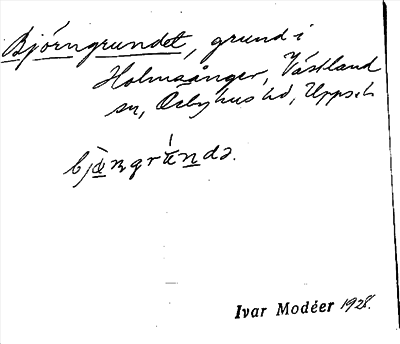 Björngrundet, grund i
Holmsånger, Västland
sn, Örbyhus hd, Upps. l.
bjœ̀ɳgrándə.
Ivar Modéer 1928.